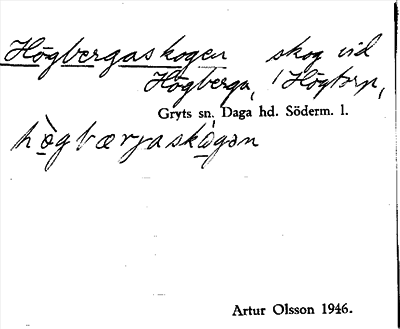 Högbergaskogen skog vid
Högberga, Högtorp,
Gryts sn. Daga hd. Söderm. l.
hògbærjaskógən
Artur Olsson 1946.